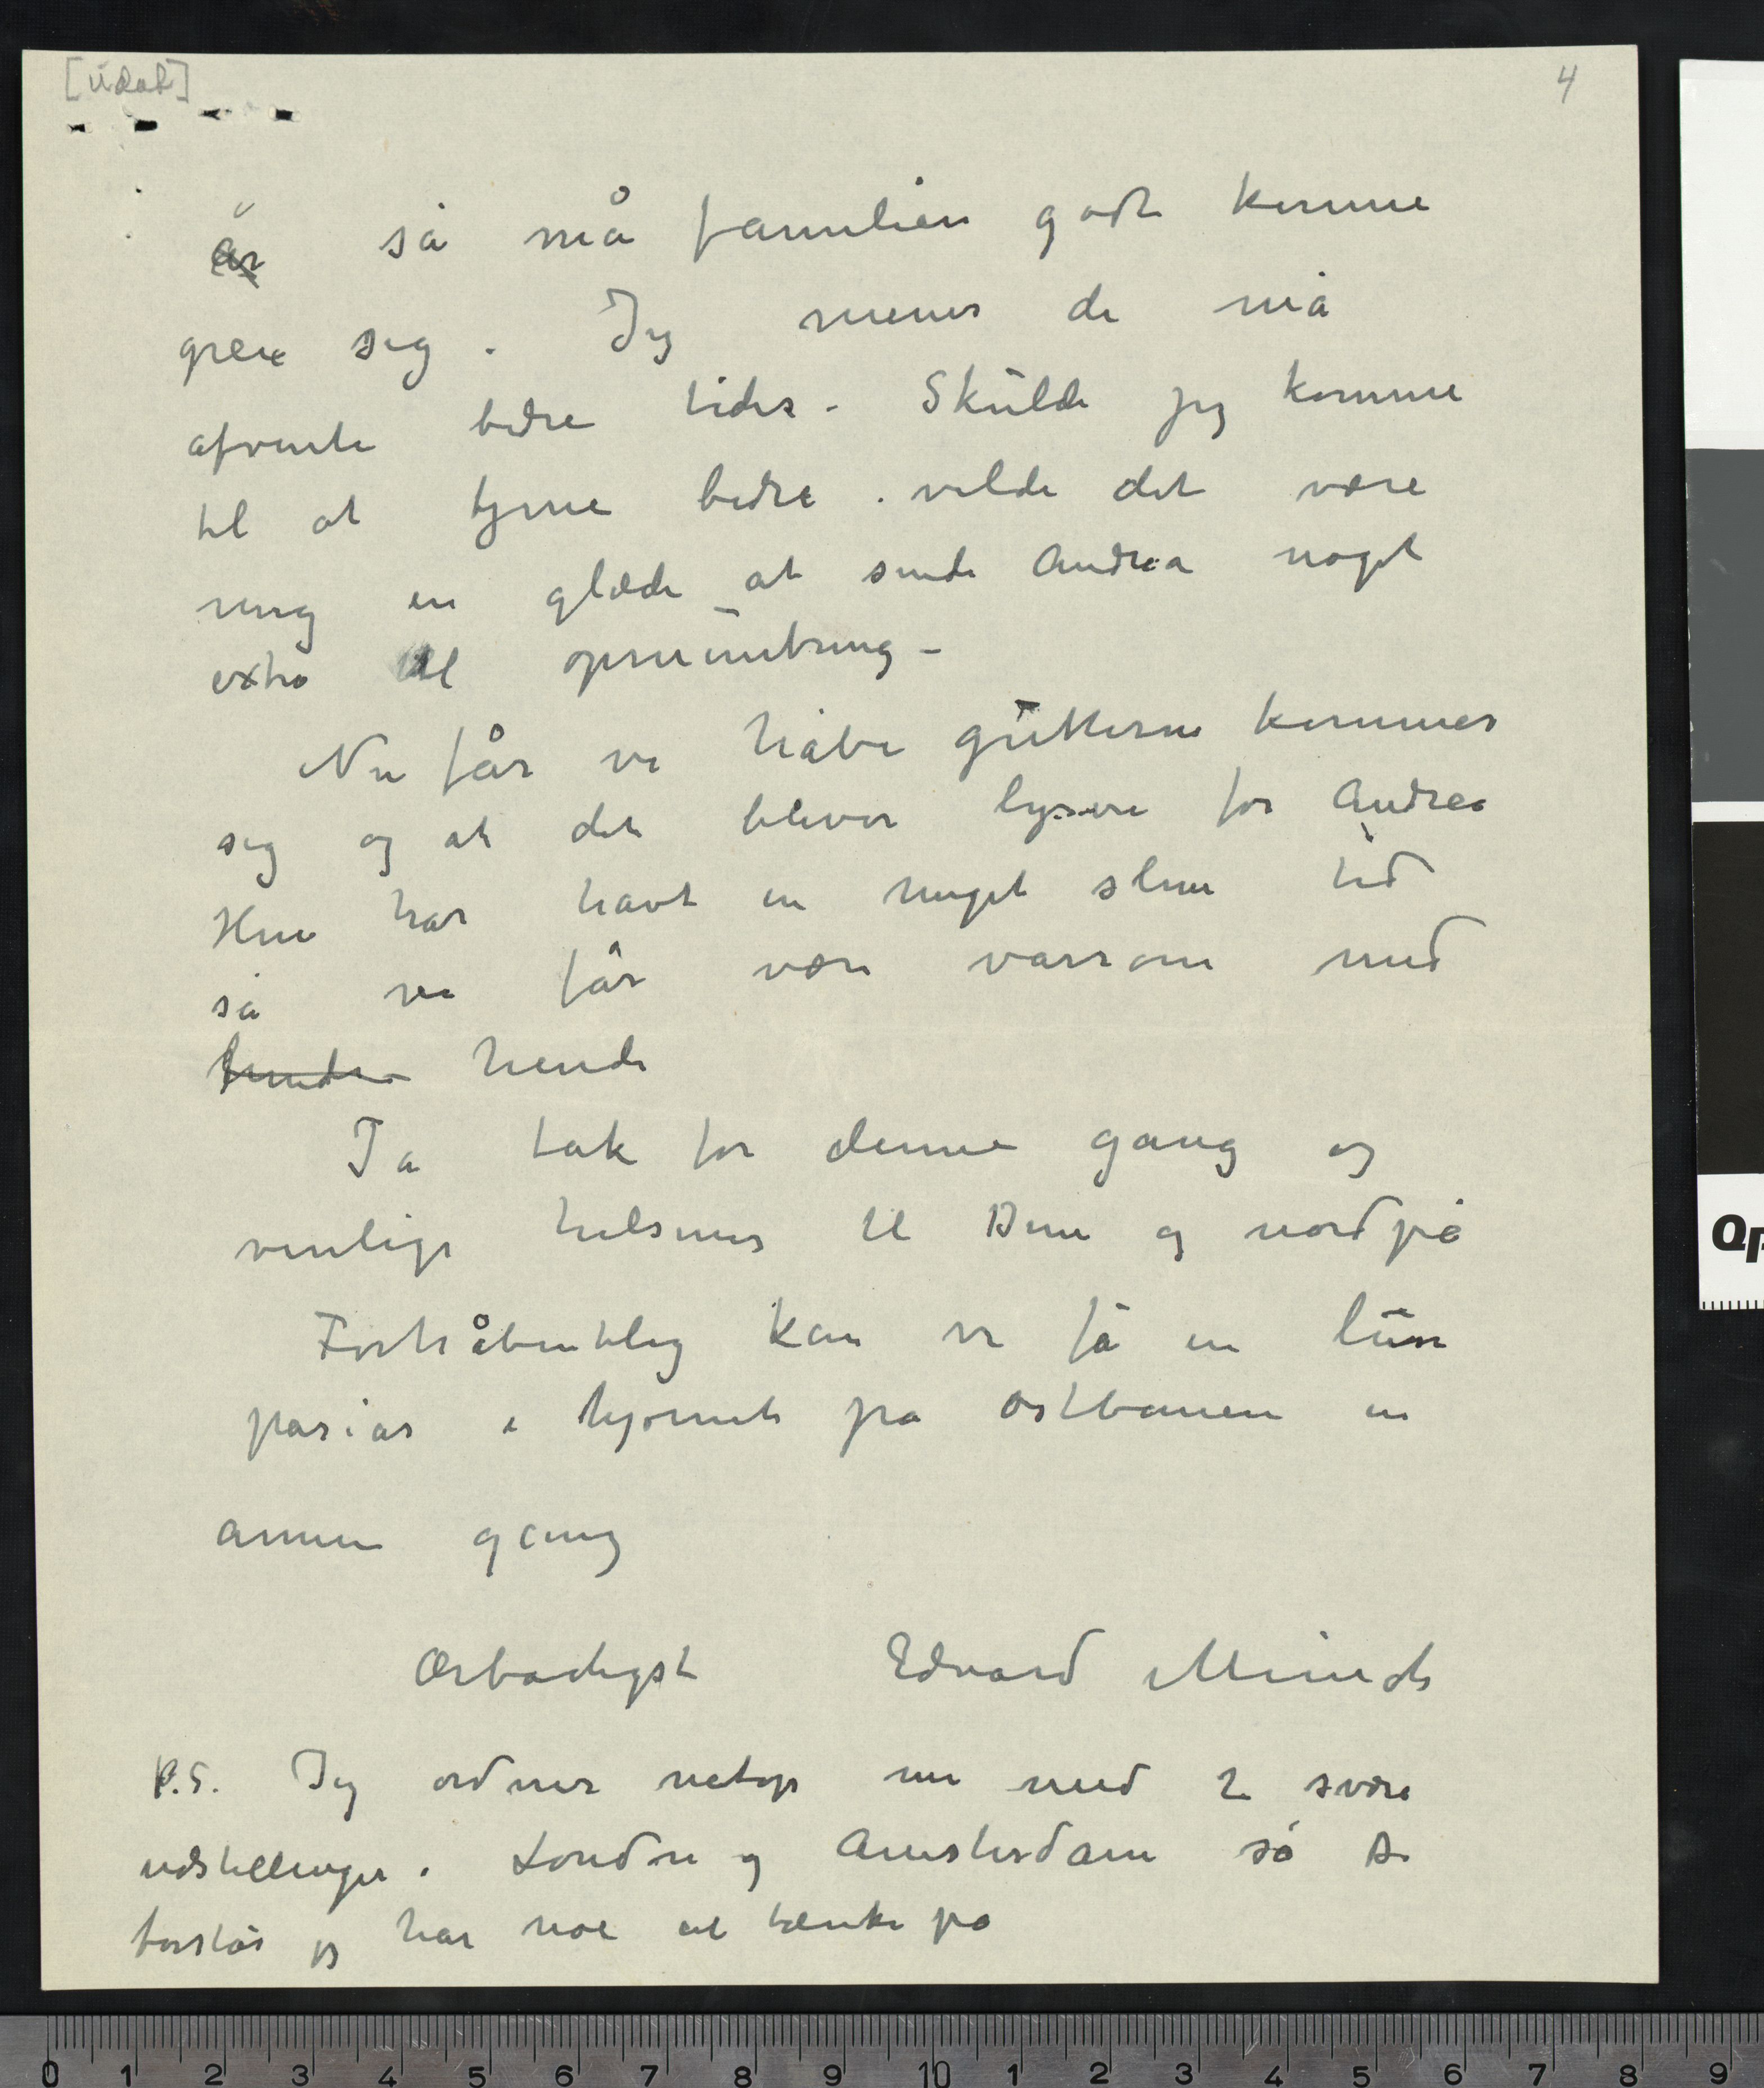 [udat]
4
år så må familien godt kunne
greie sig. Jeg mener de må
afvente bedre tider – Skulde jeg komme
til at tjene bedre vilde det være
mig en glæde at sende Andrea noget
extra til opmuntring –
Nu får vi håbe gutterne kommer
sig og at det bliver lysere for Andrea
Hun har havt en meget slem tid
så vi får være varsom med
hende
Ja tak for denne gang og
venlige hilsener til Dem og nordpå
Forhåbentlig kan vi få en lun
pasiar i hjørnet på østbanen en
annen gang
Ærbødigst Edvard Munch
P.S. Jeg ordner netop nu med 2 svære
udstillinger i London og Amsterdam så De
forstår jeg har noe at tænke på
0 1 2 3 4 5 6 7 8 9 10 1 2 3 4 5 6 7 8 9